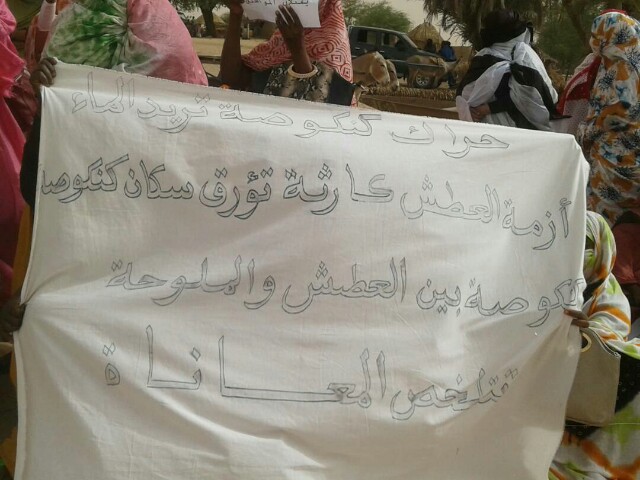 حراك كنكوصة تريد الماء
أزمة العطش كارثة تؤرق سكان كنكوصة
كنكوصة بين العطش والملوحة
تتلخص المعاناة